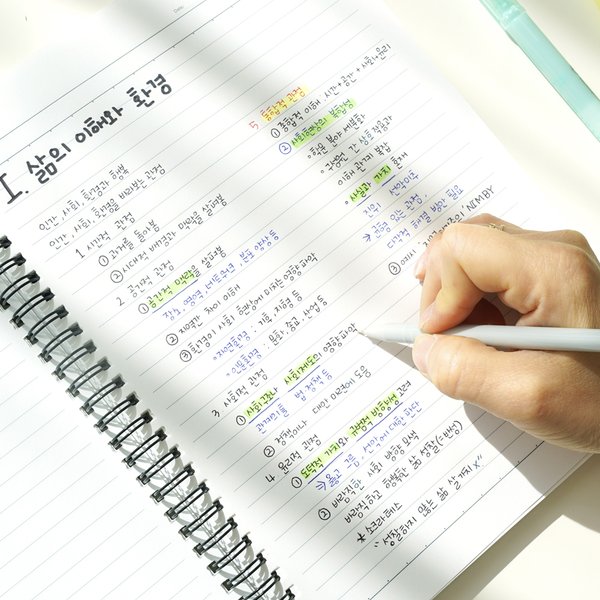 Date.
I. 삶의 이해와 환경
인간, 사회, 환경과 행복
인간, 사회, 환경을 바라보는 관점
1. 시간적 관점
① 과거를 돌아봄
② 시대적 배경과 맥락을 살펴봄
2. 공간적 관점
① 공간적 맥락을 살펴봄
장소, 영역, 네트워크, 분포 양상 등
② 지역간 차이 이해
③ 환경이 사회 현상에 미치는 영향 파악
• 자연환경: 기후, 지형 등
• 인문환경: 문화, 종교, 산업 등
3. 사회적 관점
① 사회구조나 사회제도의 영향 파악
법 정책 등
② 정책이나 대안 마련에 도움
4. 윤리적 관점
① 도덕적 가치와 규범적 방향성 고려
→ 옳고 그름, 선악에 대한 판단
② 바람직한 사회 방향 모색
바람직하고 행복한 삶 성찰(=반성)
* 소크라테스
"성찰하지 않는 삶 살 가치 X"
5. 통합적 관점
① 종합적 이해: 시간+공간+사회+윤리
② 사회현상의 복합성
• 학문 분야 세분화
• 구성원 간 상호작용과
이해 관계 복잡
• 사실과 가치 혼재
있는 관점,
다각적 해결 방안 필요
③ 예시: NIMBY